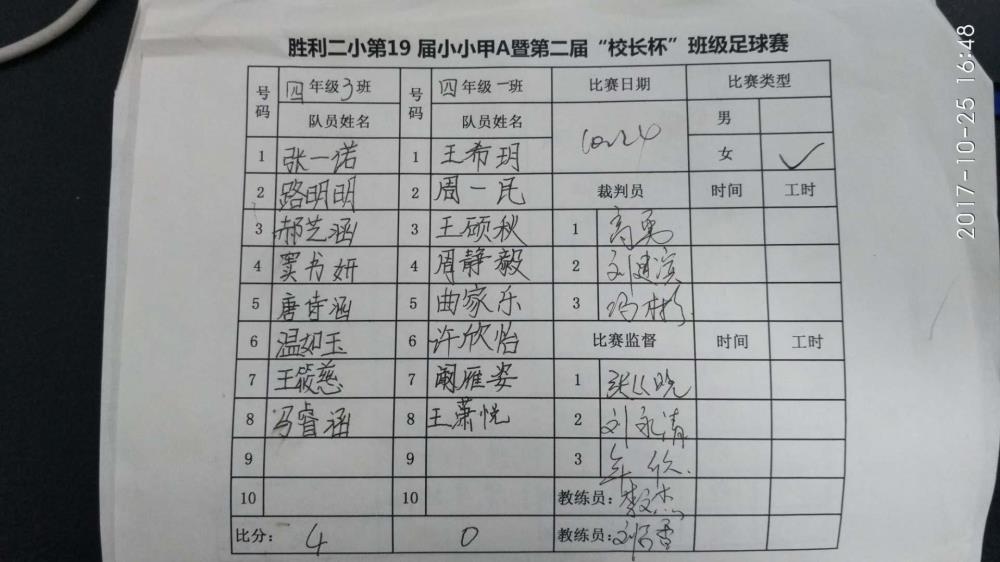 胜利二小第19 届小小甲A暨第二届“校长杯”班级足球赛
号码 四年级3班 号码 四年级一班 比赛日期 比赛类型
队员姓名 队员姓名 10.24 男
1 张一诺 1 王希玥 女 ✓
2 路明明 2 周一民 裁判员 时间 工时
3 郝艺涵 3 王硕秋 1 高勇
4 窦书妍 4 周静毅 2 刘建滨
5 唐诗涵 5 曲家乐 3
6 温如玉 6 许欣怡 比赛监督 时间 工时
7 王筱慈 7 阚雁姿 1
8 冯睿涵 8 王潇悦 2 刘永清
9 9 3
10 10 教练员:
比分: 4 0 教练员:
2017-10-25 16:48